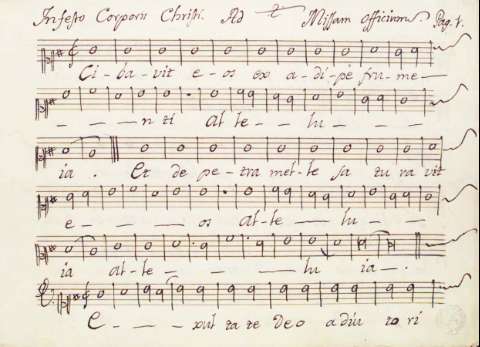 In festo Corporis Christi. Ad Missam Officium Pag. 1.
Ci-ba-vit e-os ex a-di-pe fru-me-
- - - n ti al-le-lu - -
ia. Et de pe-tra mel-le sa tu ra vit
e - - - os al-le - - lu -
ia al-le - - - lu ia-.
E - - - xul ta te Deo adiu to ri